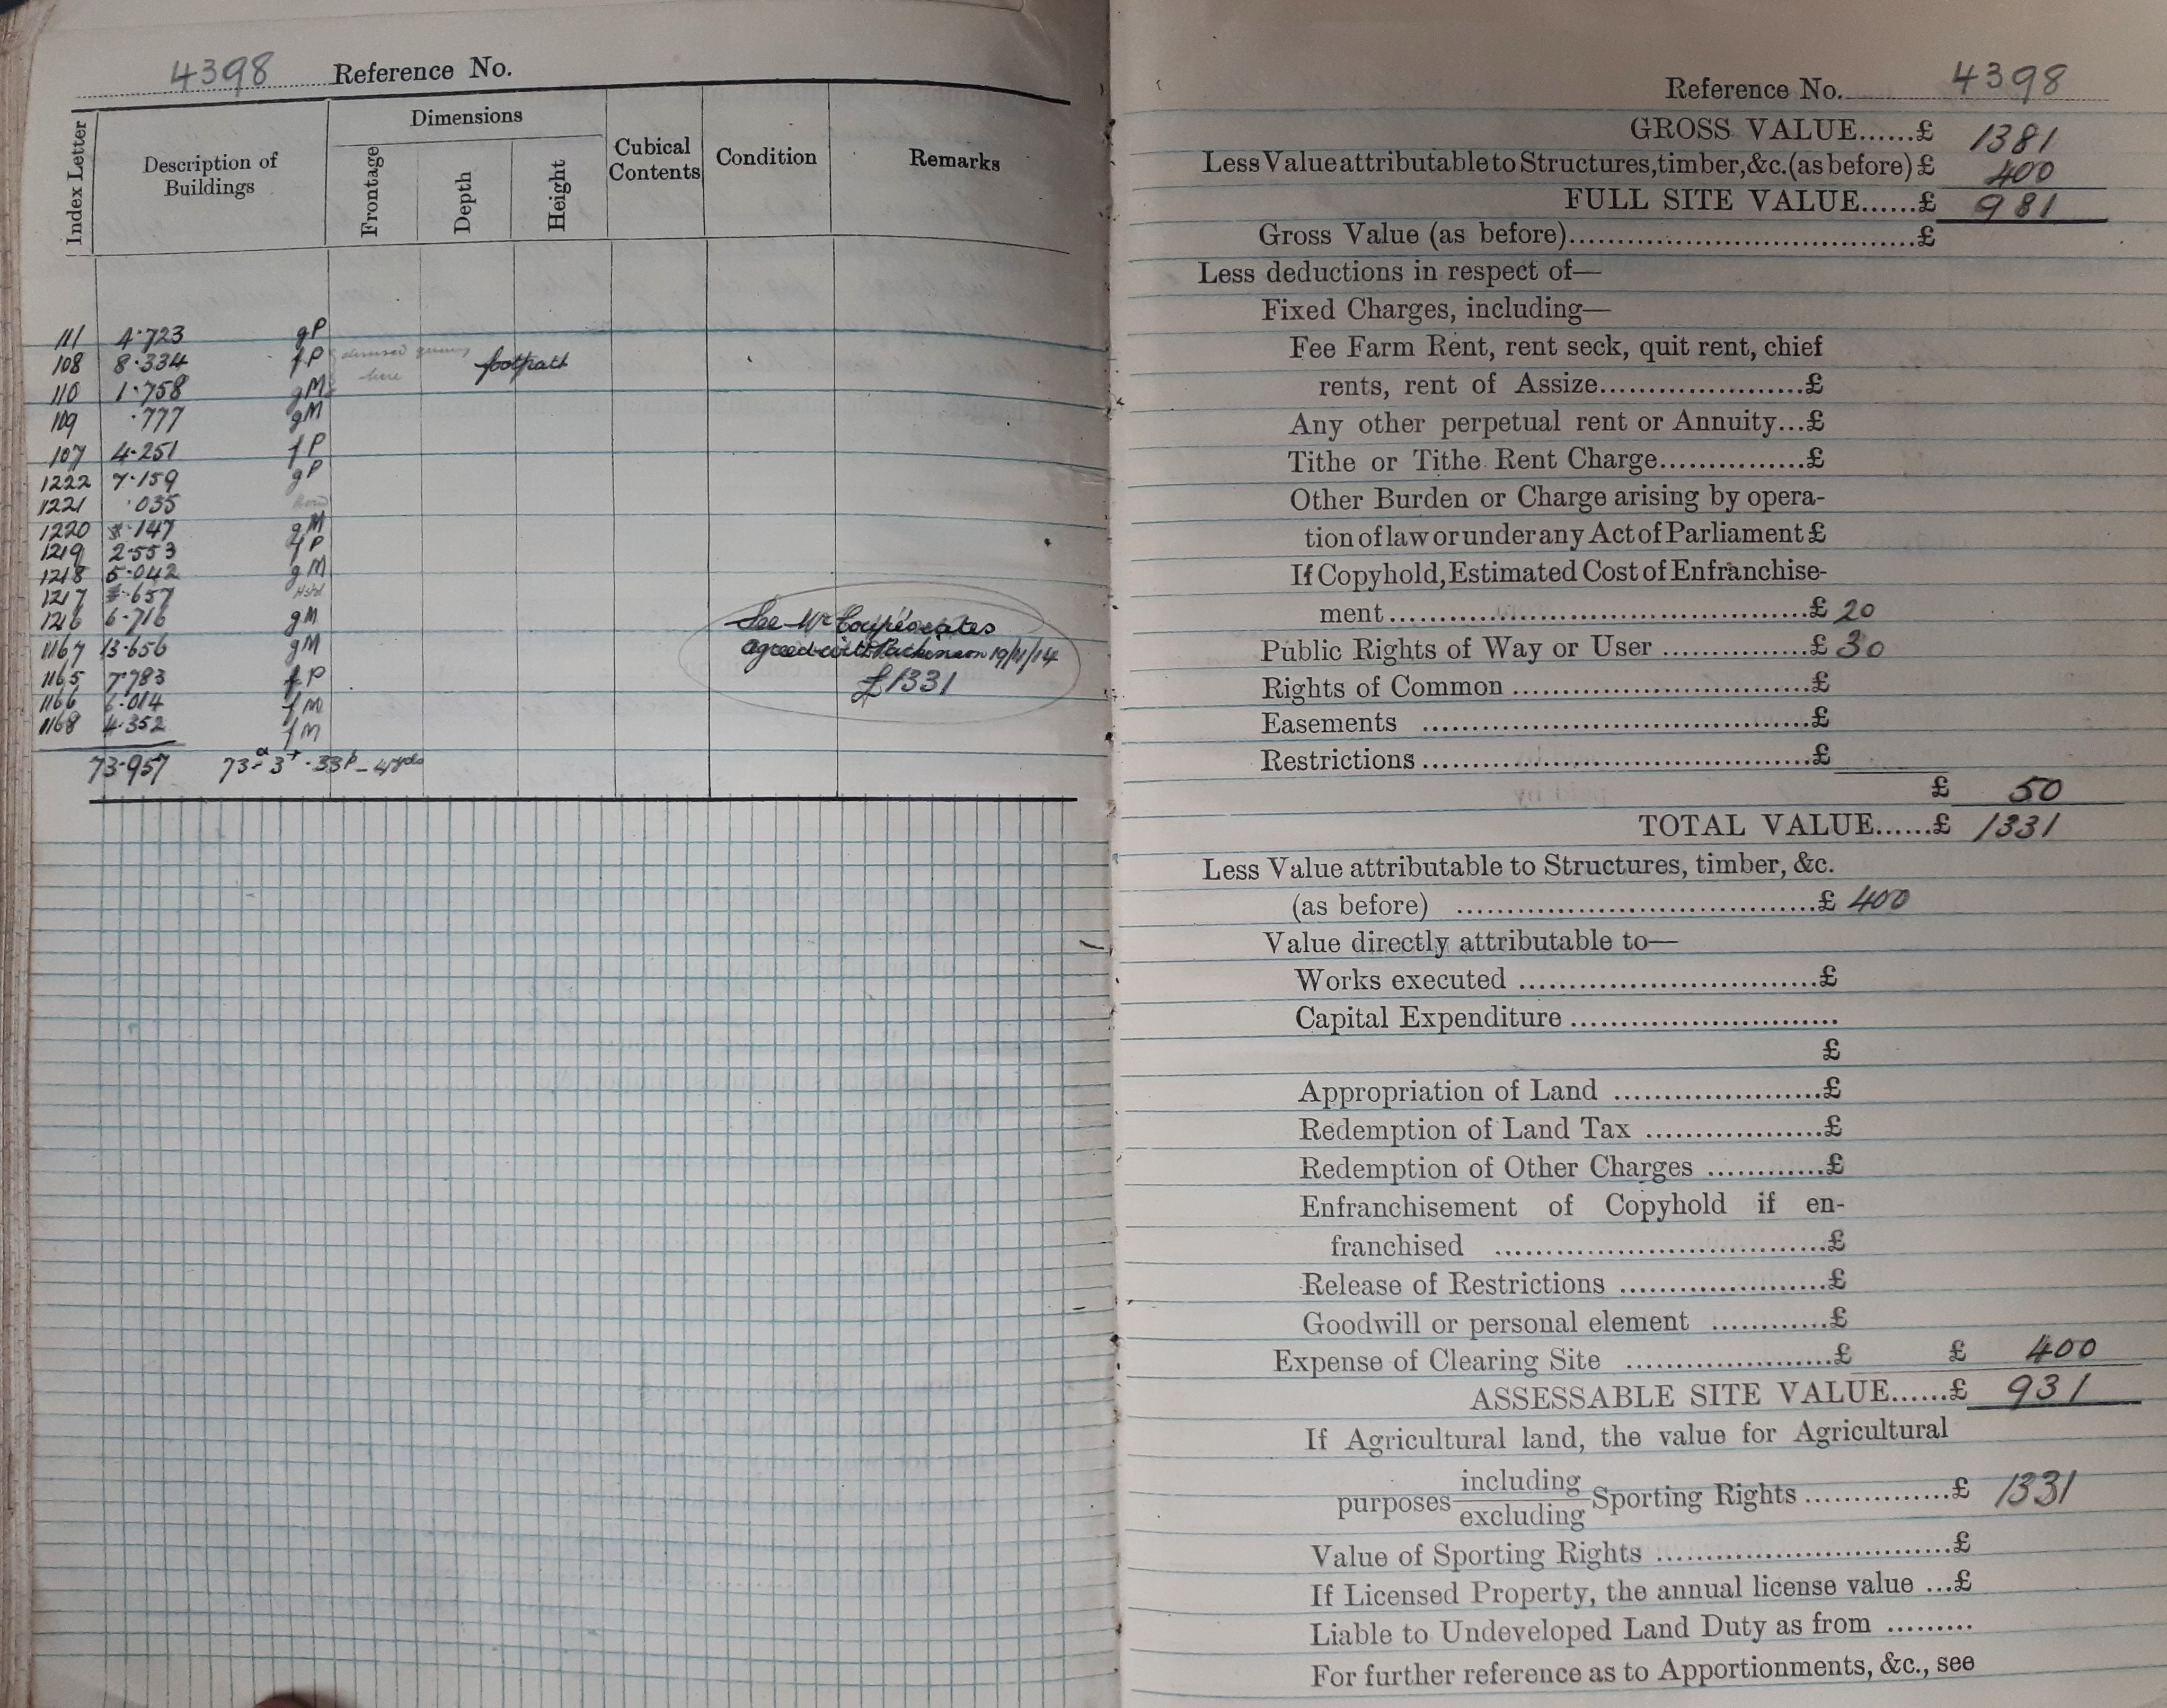 4398 Reference No.
Index Letter
Description of Buildings
Dimensions
Frontage
Depth
Height
Cubical Contents
Condition
Remarks
111 4.723 gP
108 8.334 fP disused here footpath
110 1.758 gM
109 .777 gM
107 4.251 fP
1222 7.159 gP
1221 .035
1220 .147 gM
1219 2.553 fP
1218 5.042 gM
1217 .657 Hstd
1216 6.716 gM
1167 13.656 gM
1165 7.783 fP
1166 6.014 fM
1168 4.352 fM
73.957 73a 3r 33p 4yds
See Mr
agreed with 19/11/14
£1331
Reference No. 4398
GROSS VALUE......£ 1381
Less Value attributable to Structures, timber, &c. (as before) £ 400
FULL SITE VALUE......£ 981
Gross Value (as before)......£
Less deductions in respect of—
Fixed Charges, including—
Fee Farm Rent, rent seck, quit rent, chief
rents, rent of Assize......£
Any other perpetual rent or Annuity...£
Tithe or Tithe Rent Charge......£
Other Burden or Charge arising by opera-
tion of law or under any Act of Parliament £
If Copyhold, Estimated Cost of Enfranchise-
ment......£ 20
Public Rights of Way or User......£ 30
Rights of Common......£
Easements......£
Restrictions......£
£ 50
TOTAL VALUE......£ 1331
Less Value attributable to Structures, timber, &c.
(as before)......£ 400
Value directly attributable to—
Works executed......£
Capital Expenditure......
£
Appropriation of Land......£
Redemption of Land Tax......£
Redemption of Other Charges......£
Enfranchisement of Copyhold if en-
franchised......£
Release of Restrictions......£
Goodwill or personal element......£
Expense of Clearing Site......£ £ 400
ASSESSABLE SITE VALUE......£ 931
If Agricultural land, the value for Agricultural
purposes including excluding Sporting Rights......£ 1331
Value of Sporting Rights......£
If Licensed Property, the annual license value ...£
Liable to Undeveloped Land Duty as from .........
For further reference as to Apportionments, &c., see